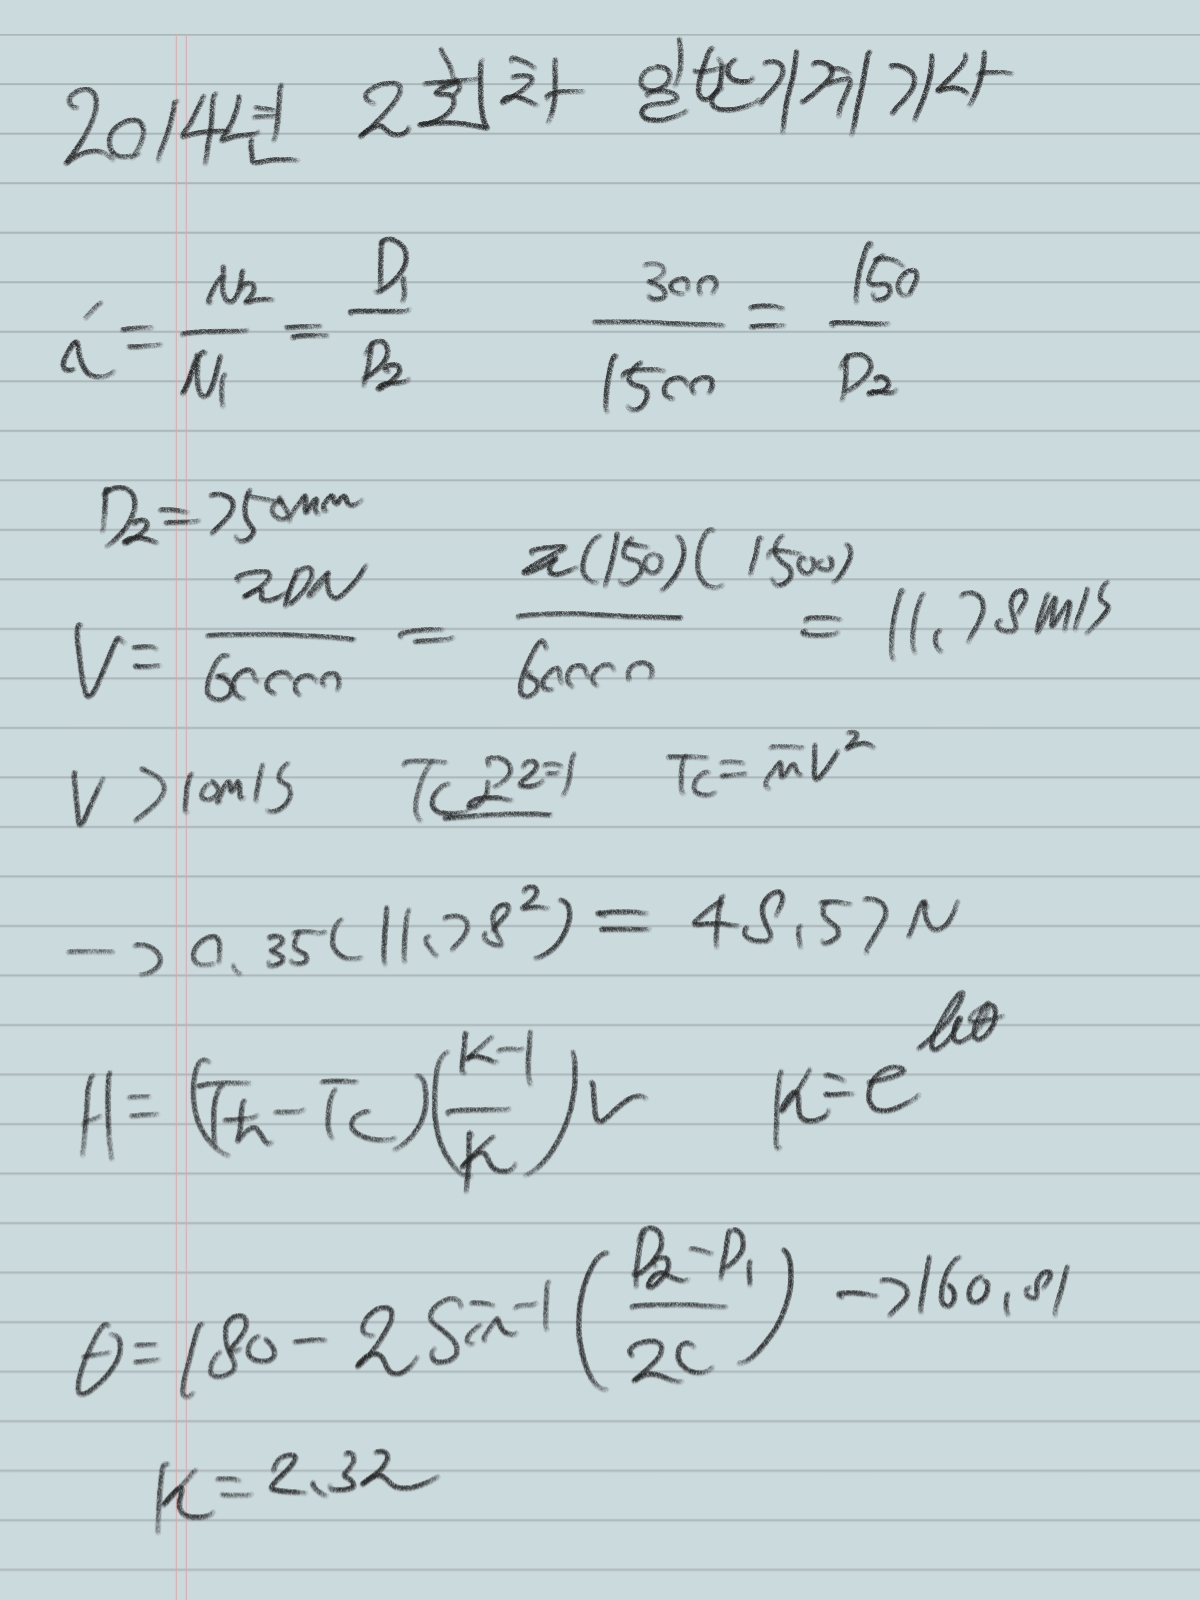 2014년 2회차 일반기계기사
i = N2/N1 = D1/D2 300/1500 = 150/D2
D2 = 750mm
V = πDN/60000 = π(150)(1500)/60000 = 11.78m/s
V > 10m/s Tc 고려 Tc = m̄V²
→ 0.35(11.78²) = 48.57N
H = (Tt - Tc)((K-1)/K)V K = e^μθ
θ = 180 - 2Sin⁻¹((D2-D1)/2C) → 160.81
K = 2.32